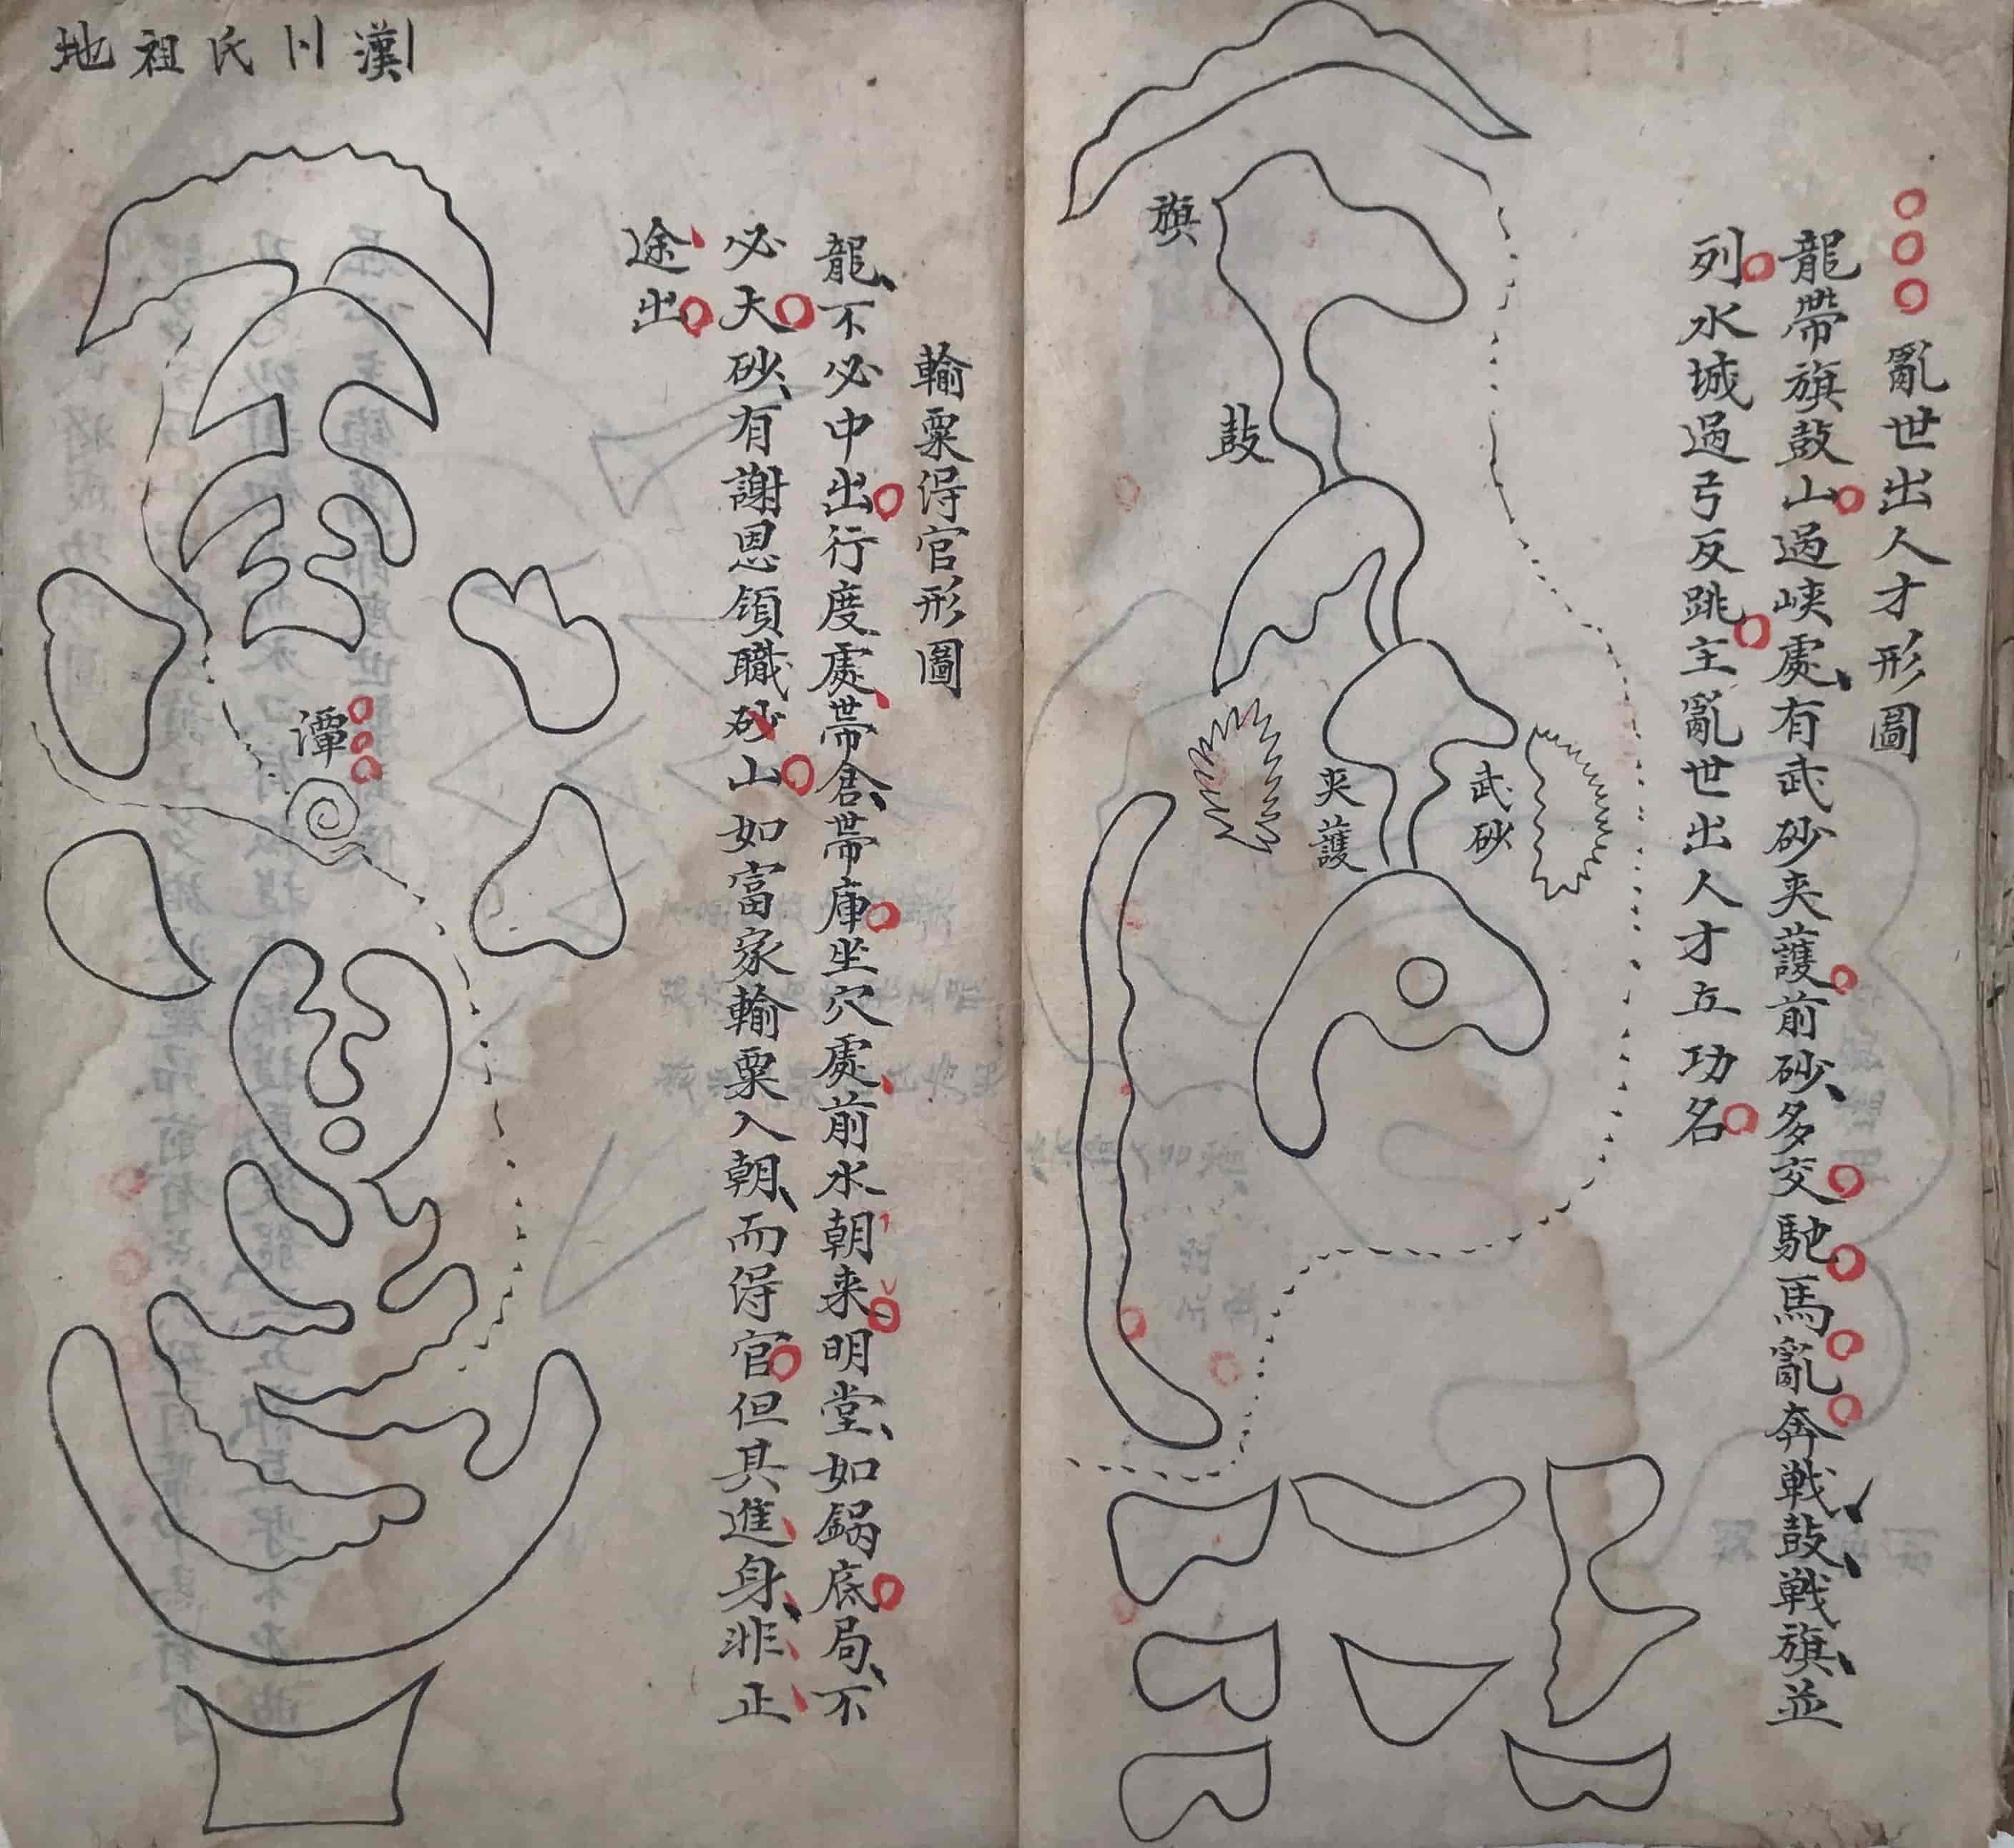 亂世出人才形圖
龍帶旗鼓山過峽處有武砂夾護前砂多交馳馬亂奔戰鼓戰旗並
列水城過弓反跳主亂世出人才立功名
旗
鼓
武砂
夾護
輸粟得官形圖
龍不必中出行度處帶倉帶庫坐穴處前水朝来明堂如鍋底局不
必大砂有謝恩領職砂山如富家輸粟入朝而得官但其進身非止
途出
潭
漢川氏祖地